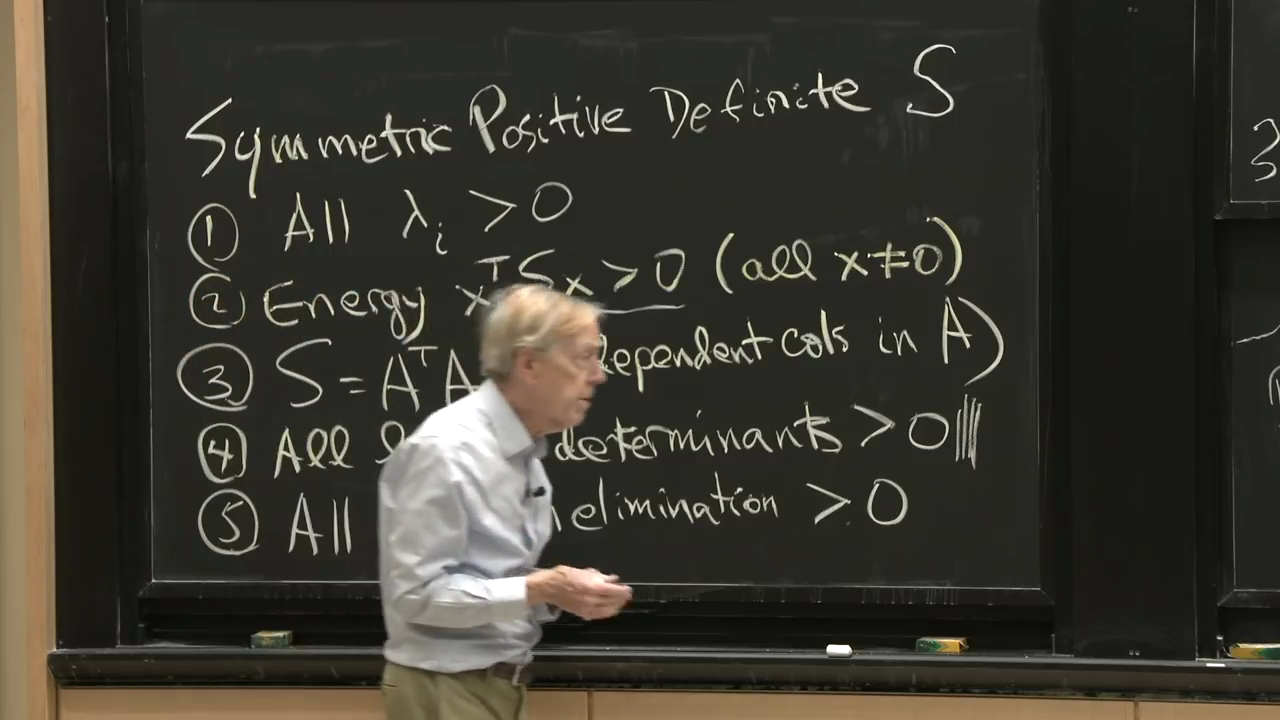 Symmetric Positive Definite S
① All λᵢ > 0
② Energy xᵀSx > 0 (all x ≠ 0)
③ S = AᵀA dependent cols in A)
④ All determinants > 0
⑤ All elimination > 0
3